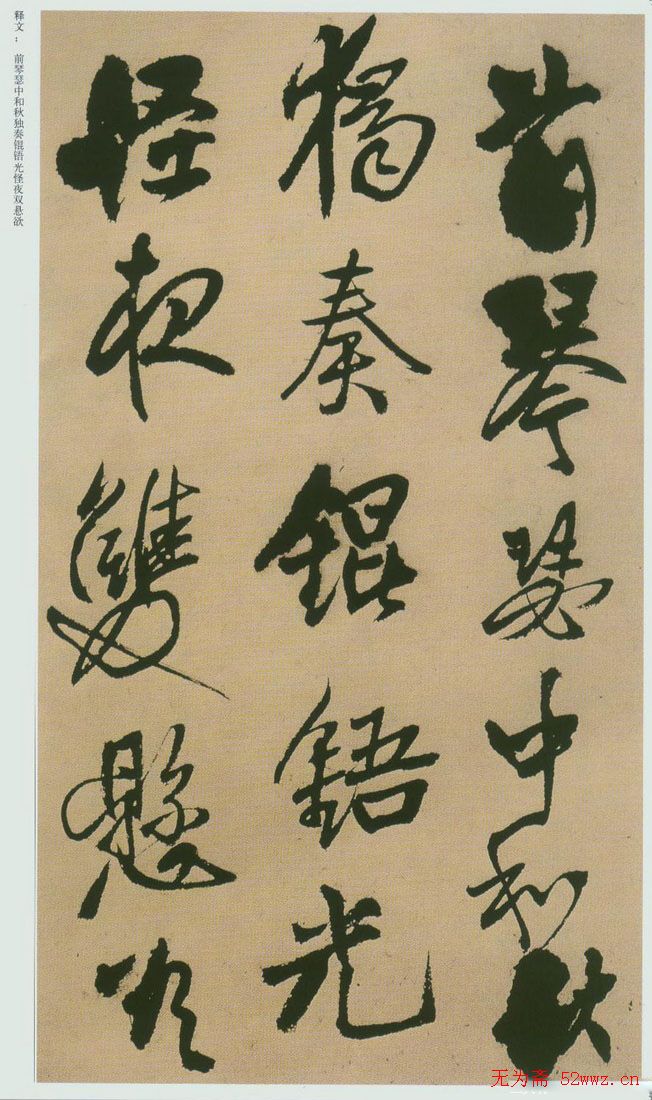 释文： 前琴瑟中和秋独奏锟铻光怪夜双悬欲
前琴瑟中和秋
獨奏錕鋙光
怪夜雙懸欲
无为斋 52wwz.cn